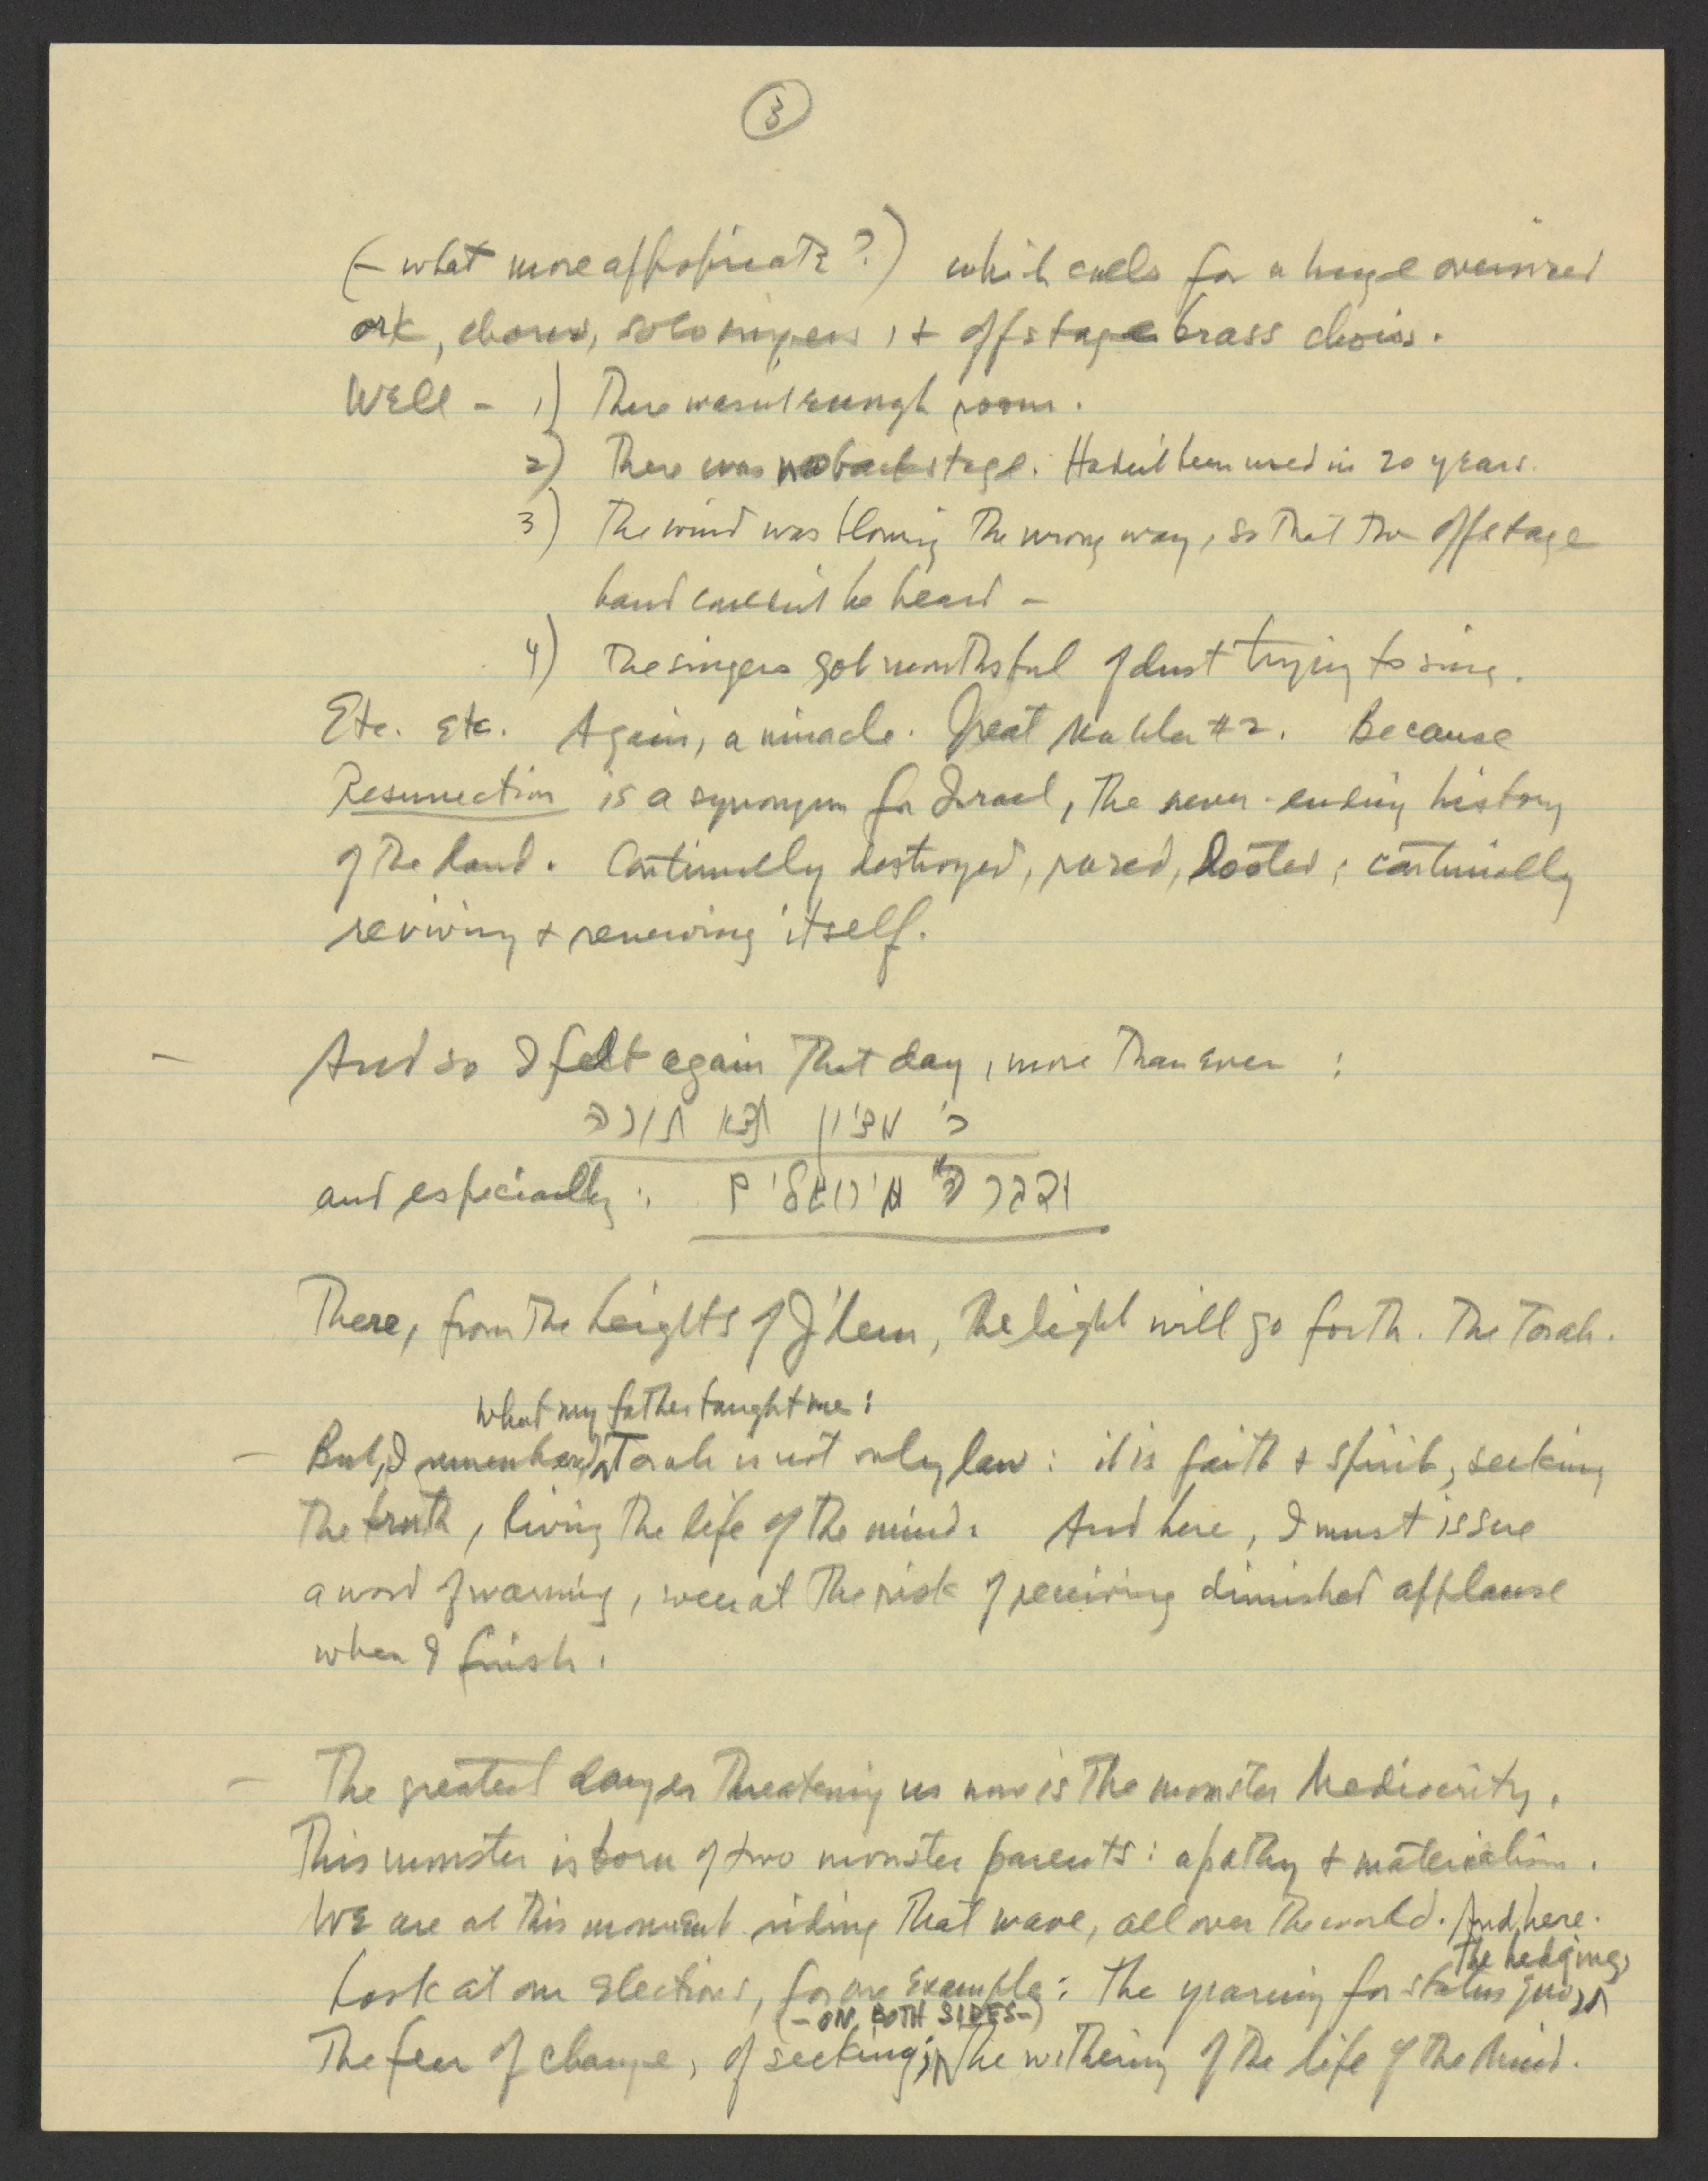 3
(– what more appropriate?) which calls for a huge oversized
ork, chorus, solo singers, + offstage brass choirs.
Well – 1) There wasn't enough room.
2) There was no backstage. Hadn't been used in 20 years.
3) The wind was blowing the wrong way, so that the offstage
band couldn't be heard –
4) The singers got mouthsful of dust trying to sing.
Etc. Etc. Again, a miracle. Great Mahler #2. Because
Resurrection is a synonym for Israel, the never-ending history
of the land. Continually destroyed, razed, looted; continually
reviving + renewing itself.
– And so I felt again that day, more than ever :
כי מציון תצא תורה
and especially: ודבר ה' מירושלים
There, from the heights of J'lem, the light will go forth. The Torah.
what my father taught me:
– But, I remembered, Torah is not only law: it is faith + spirit, seeking
the truth, living the life of the mind. And here, I must issue
a word of warning, even at the risk of receiving diminished applause
when I finish.
– The greatest danger threatening us now is the monster Mediocrity.
This monster is born of two monster parents: apathy + materialism.
We are at this moment riding that wave, all over the world. And here.
the hedging,
Look at our elections, for one example: the yearning for status quo,
(– ON BOTH SIDES –)
The fear of change, of seeking; the withering of the life of the Mind.